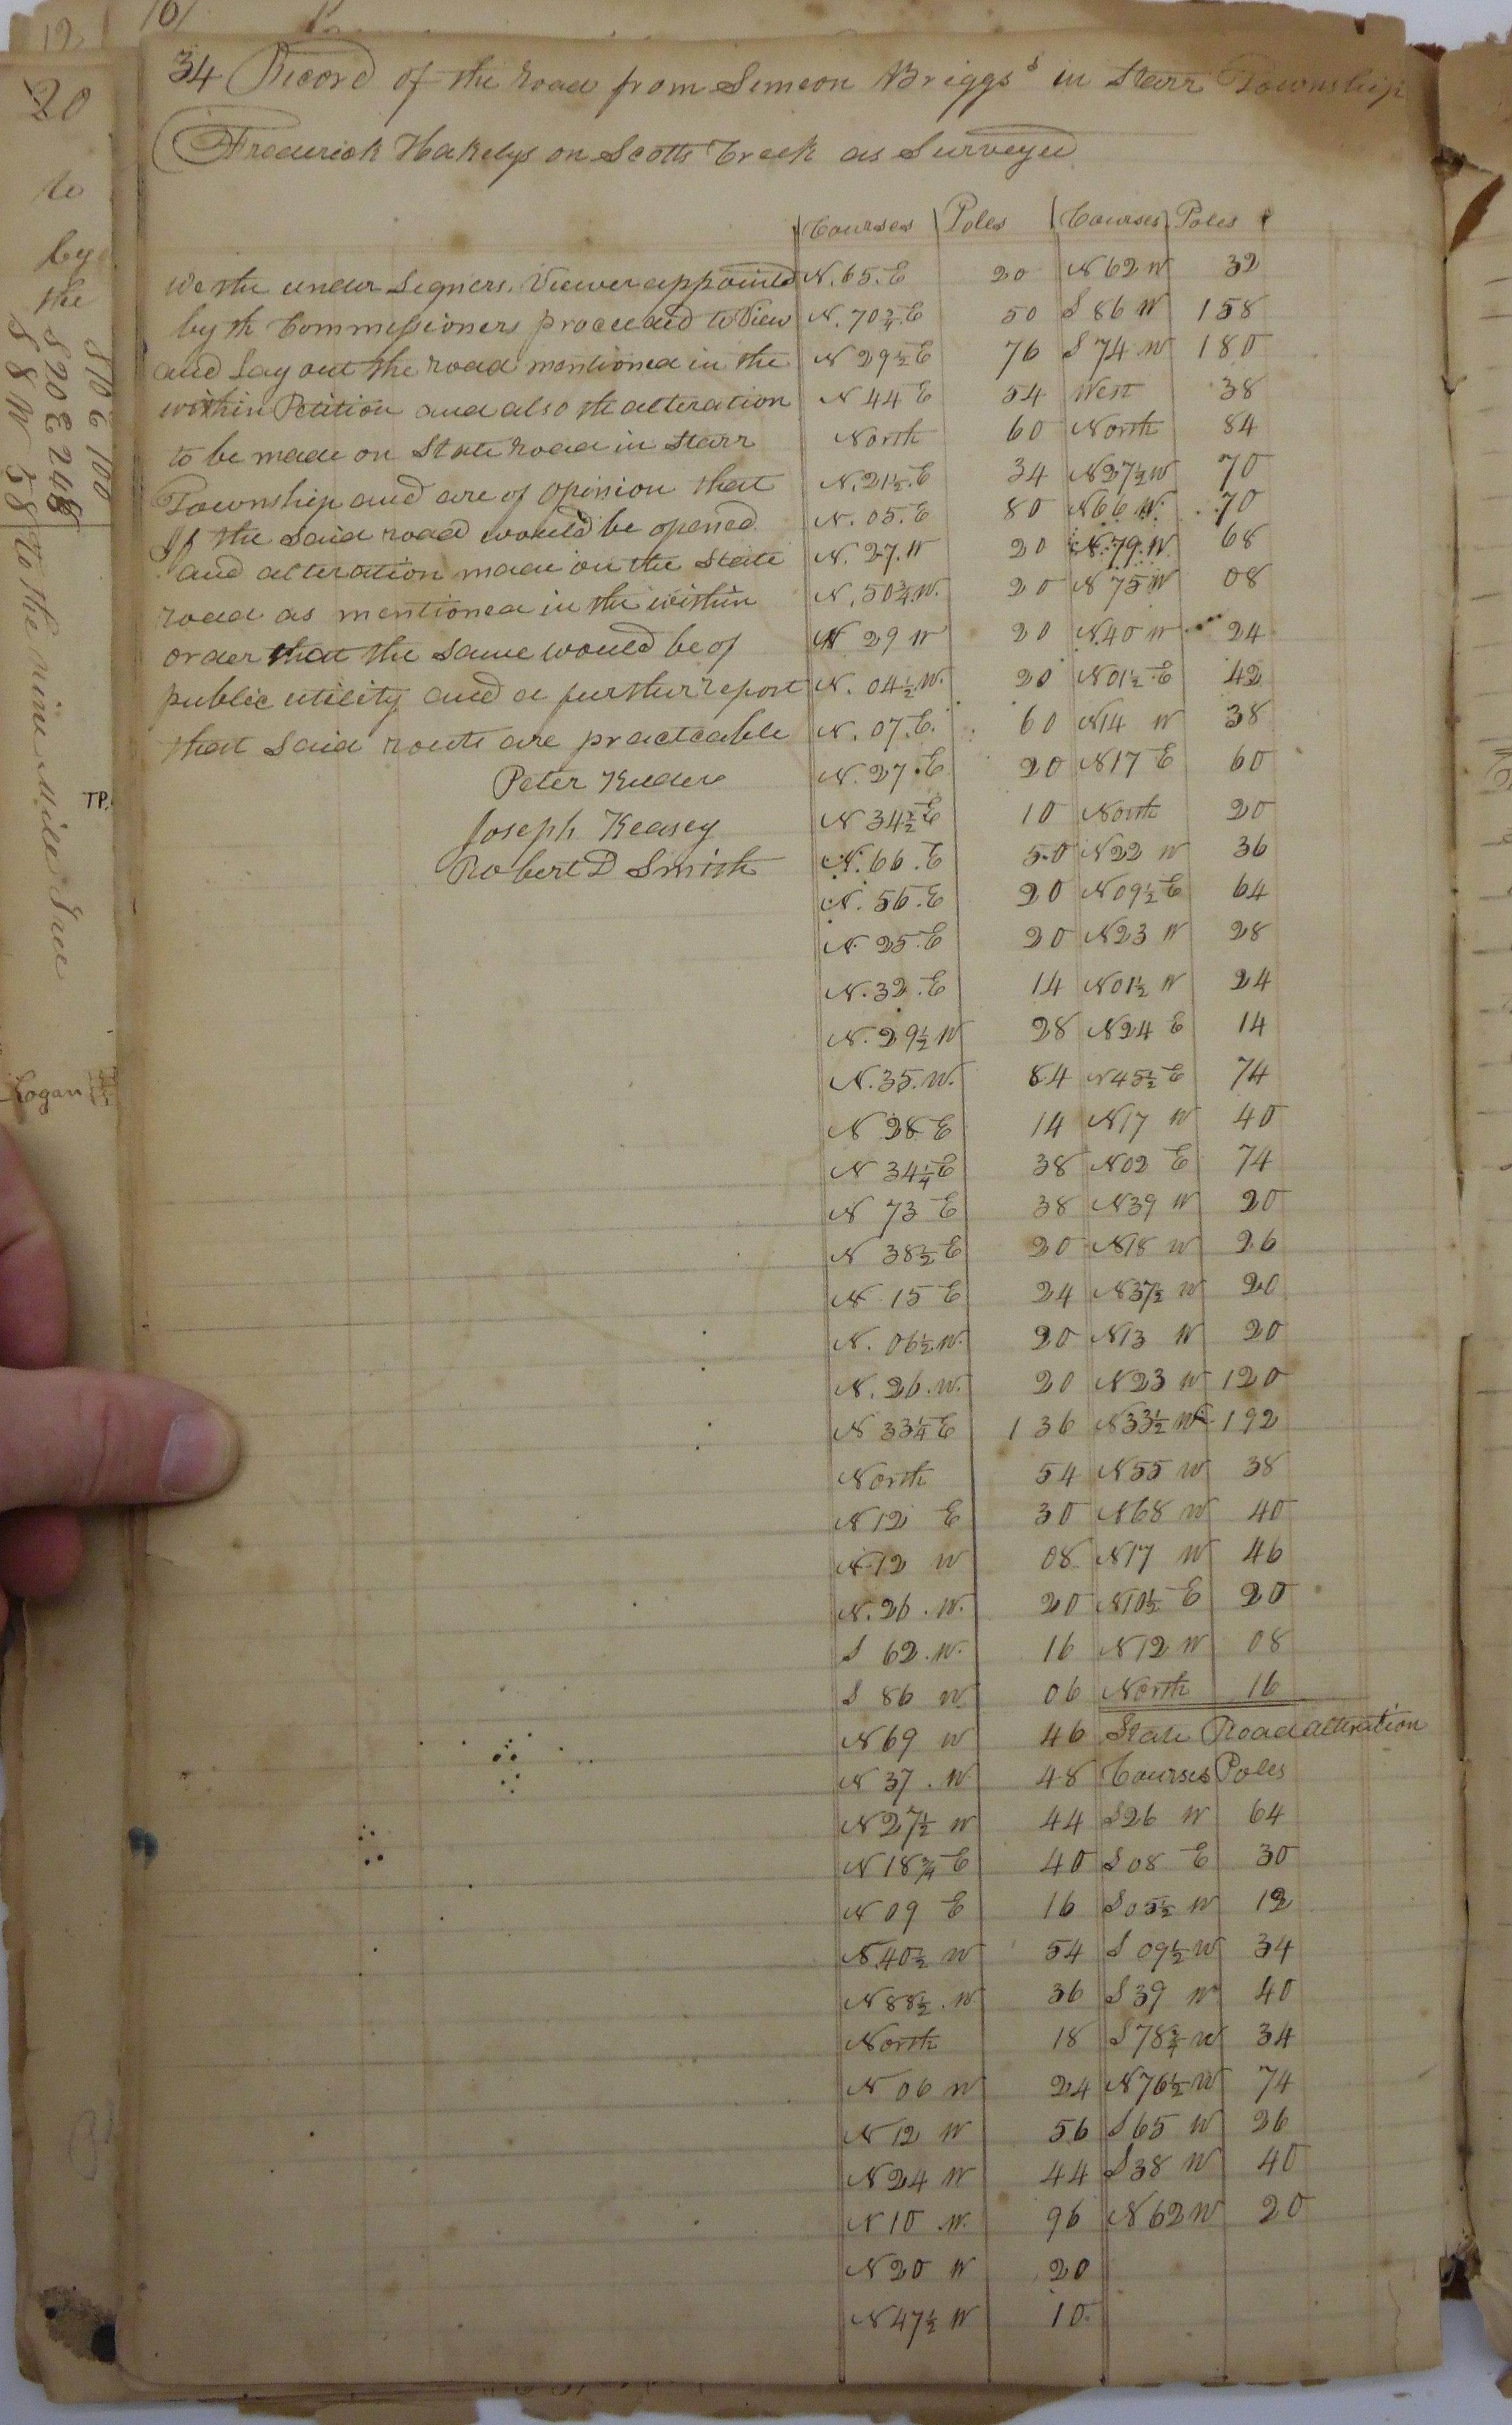 34 Record of the road from Simeon Briggs's in Starr Township
Frederick Hakelys on Scotts Creek as Surveyed
Courses Poles Courses Poles
We the under Signers, Viewer appointed
by th Commissioners proceeded to View
and Lay out the road mentioned in the
within Petition and also the alteration
to be made on State road in Starr
Township and are of opinion that
If the said road would be opened
and alteration made on the State
road as mentioned in the within
order that the same would be of
public utility and a further report
that said route are practcable
Peter Kuder
Joseph Keasey
Robert D Smith
N. 65. E 20 N 62 W 32
N. 70 3/4. E 50 S 86 W 158
N 29 1/2 E 76 S 74 W 180
N 44 E 54 West 38
North 60 North 84
N. 21 1/2. E 34 N 27 1/2 W 70
N. 05. E 80 N 66 W. 70
N. 27. W 20 N. 79. W. 68
N. 50 3/4. W. 20 N 75 W 08
N 29 W 20 N. 40 W 24
N. 04 1/2. W. 20 N 01 1/2. E 42
N. 07. E. 60 N 14 W 38
N. 27. E 20 N 17 E 60
N 34 1/2 E 10 North 20
N. 66. E 50 N 22 W 36
N. 56. E 20 N 09 1/2 E 64
N. 25. E 20 N 23 W 28
N. 32. E 14 N 01 1/2 W 24
N. 29 1/2 W 28 N 24 E 14
N. 35. W. 84 N 45 1/2 E 74
N 28 E 14 N 17 W 40
N 34 1/4 E 38 N 02 E 74
N 73 E 38 N 39 W 20
N 38 1/2 E 20 N 18 W 26
N 15 E 24 N 37 1/2 W 20
N. 06 1/2. W. 20 N 13 W 20
N. 26. W. 20 N 23 W 120
N 33 1/4 E 136 N 33 1/2 W 192
North 54 N 55 W 38
N 12 E 30 N 68 W 40
N 12 W 08 N 17 W 46
N. 26. W. 20 N 10 1/2 E 20
S 62. W. 16 N 12 W 08
S 86 W 06 North 16
N 69 W 46 State Road alteration
N 37. W 48 Courses Poles
N 27 1/2 W 44 S 26 W 64
N 18 3/4 E 40 S 08 E 30
N 09 E 16 S 05 1/2 W 12
N. 40 1/2 W 54 S 09 1/2 W 34
N 88 1/2. W 36 S 39 W 40
North 18 S 78 3/4 W 34
N 06 W 24 N 76 1/2 W 74
N 12 W 56 S 65 W 26
N 24 W 44 S 38 W 40
N 10. W. 96 N 62 W 20
N 20 W 20
N 47 1/2 W 10
20
to
by
the
S 10 E 100
S 20 E 248
S 8 W 58
to the nine Mile Tree
TP.
Logan